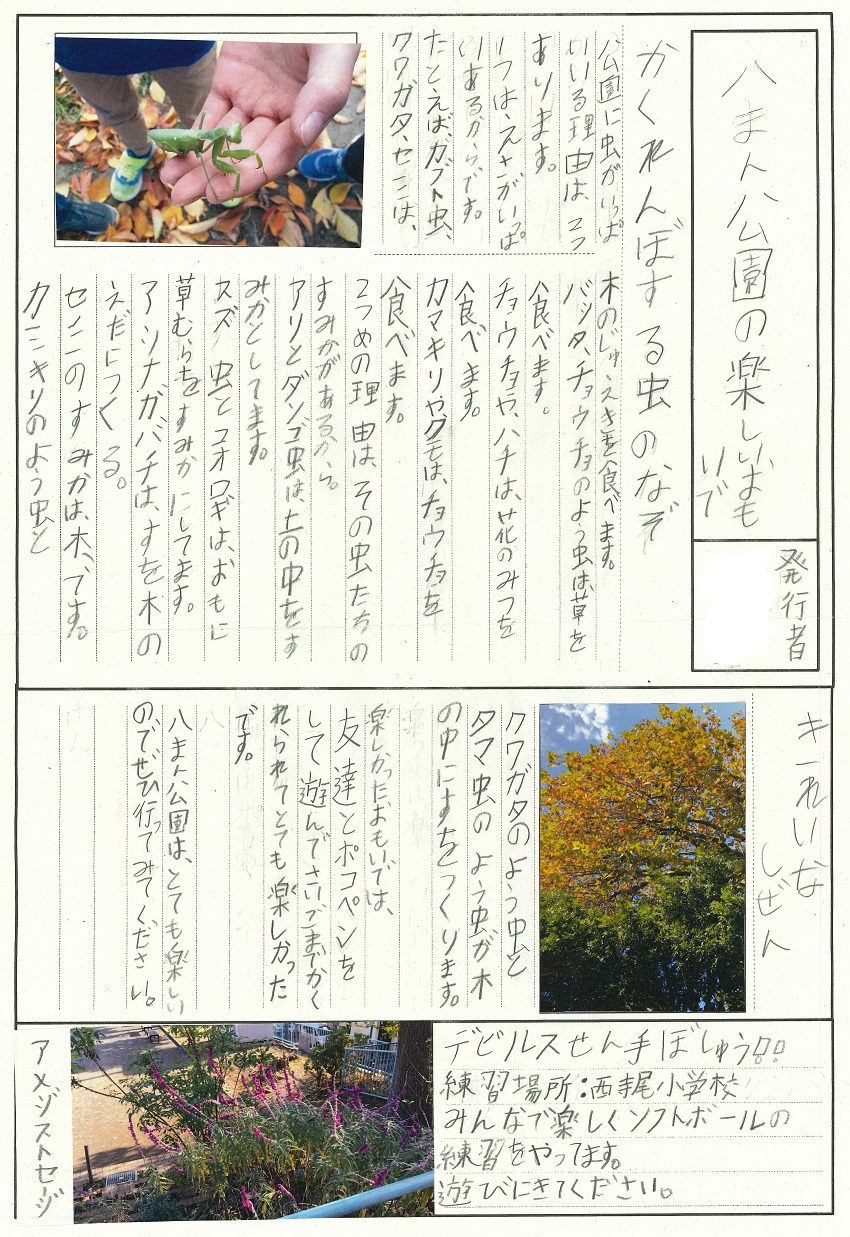 八まん公園の楽しいおも
いで
発行者
かくれんぼする虫のなぞ
公園に虫がいっぱ
いいる理由は、二つ
あります。
一つは、えさがいっぱ
いあるからです。
たとえば、カブト虫、
クワガタ、セミは、
木のじゅえきを食べます。
バッタ、チョウチョのよう虫は、草を
食べます。
チョウチョや、ハチは、花のみつを
食べます。
カマキリや、クモは、チョウチョを
食べます。
2つめの理由は、その虫たちの
すみかがあるから。
アリとダンゴ虫は、土の中をす
みかとしてます。
スズ虫とコオロギは、おもに
草むらをすみかにしてます。
アシナガバチは、すを木の
えだにつくる。
セミのすみかは、木、です。
カミキリのよう虫と
きーれいな
しぜん
クワガタのよう虫と
タマ虫のよう虫が木
の中にすをつくります。
楽しかったおもいでは、
友達とポコペンを
して遊んでさいごまでかく
れられてとても楽しかった
です。
八まん公園は、とても楽しい
の、でぜひ行ってみてください。
アメジストセージ
デビルスせん手ぼしゅう!!
練習場所：西寺尾小学校
みんなで楽しくソフトボールの
練習をやってます。
遊びにきてください。